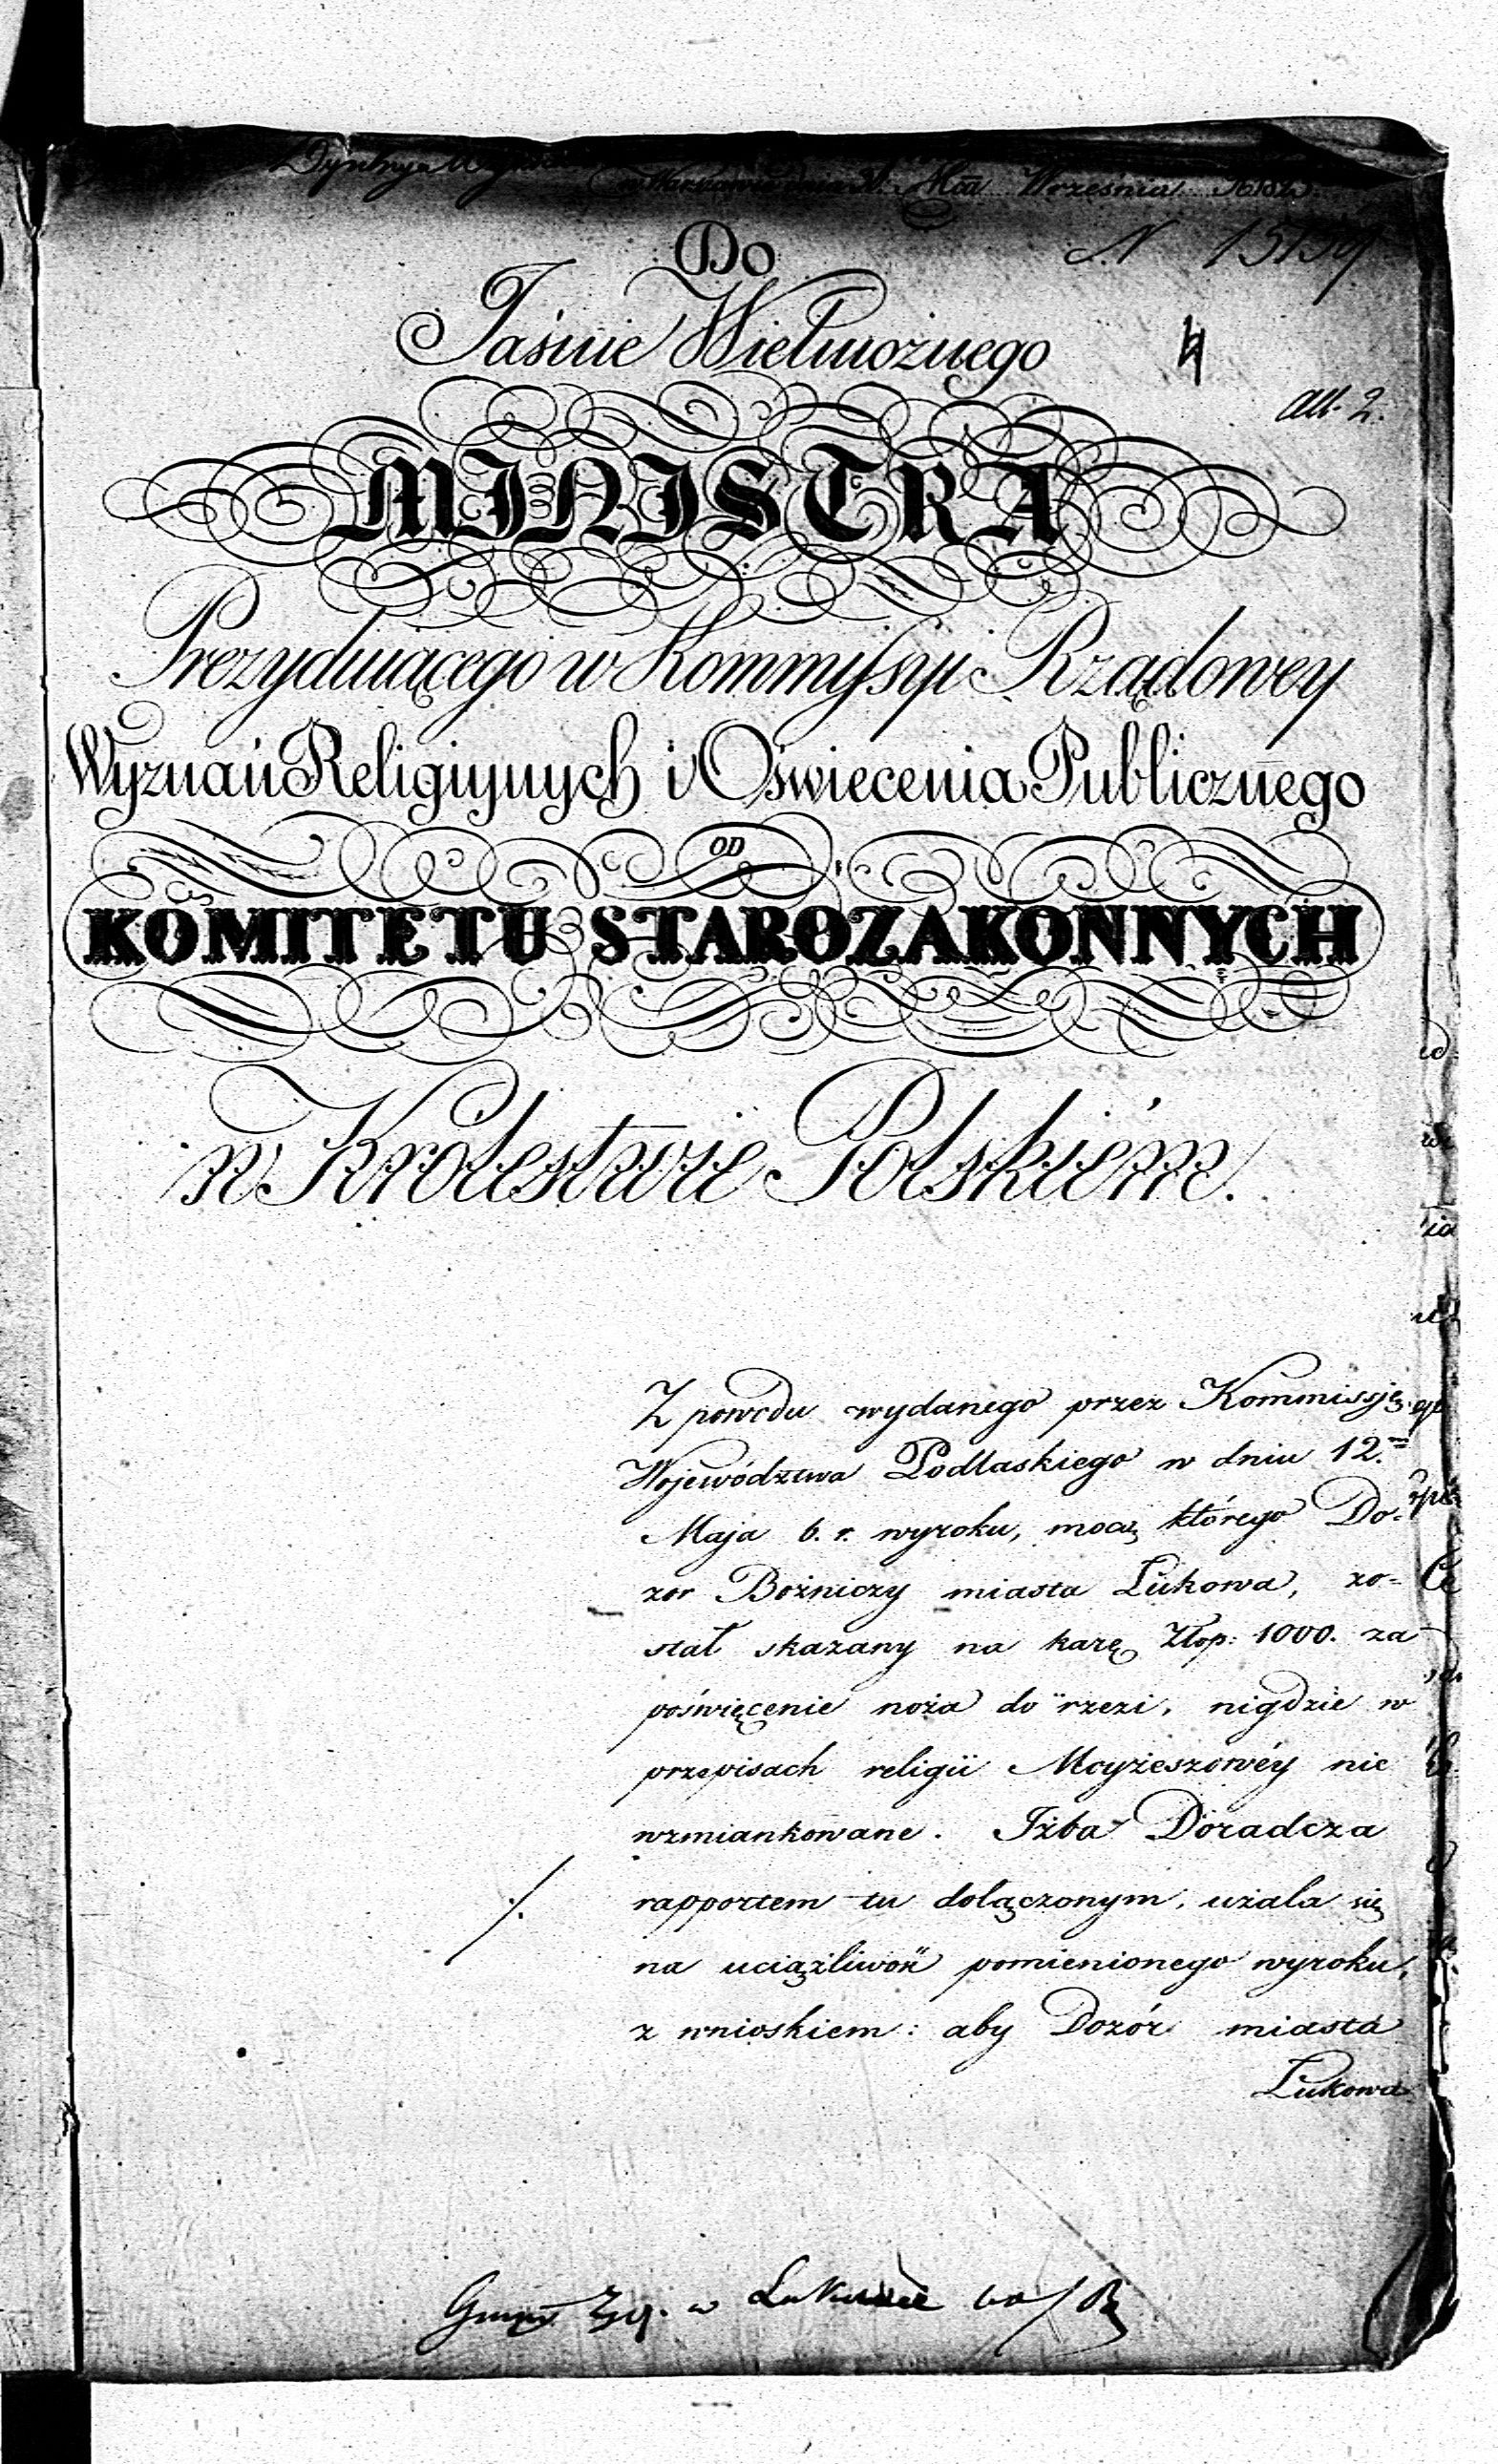 Września
N 15139
Do
Jaśnie Wielmożnego
all. 2.
MINISTRA
Prezyduiącego w Kommyssyi Rządowey
Wyznań Religiynych i Oświecenia Publicznego
OD
KOMITETU STAROZAKONNYCH
w Królestwie Polskiém.
Z powodu wydanego przez Kommissję
Województwa Podlaskiego w dniu 12.
Maja b. r. wyroku, mocą którego Do-
zor Bożniczy miasta Łukowa, zo=
stał skazany na karę Złop: 1000. za
poświęcenie noża do rzezi, nigdzie w
przepisach religii Moyżeszowéy nie
wzmiankowane. Izba Doradcza
./. rapportem tu dołączonym, użala się
na uciążliwość pomienionego wyroku,
z wnioskiem: aby Dozór miasta
Łukowa
w